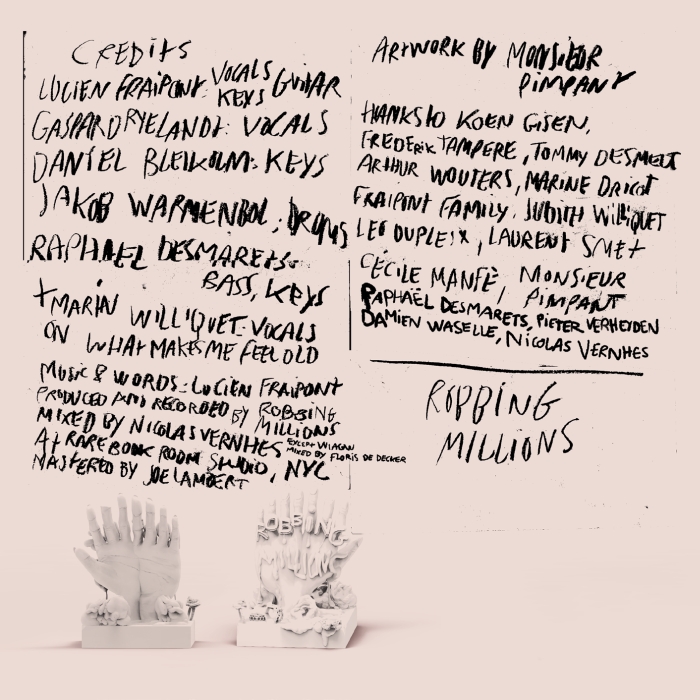 CREDITS
LUCIEN FRAIPONT: VOCALS GUITAR
KEYS
GASPARD RYELANDT: VOCALS
DANIEL BLEIKOLM: KEYS
JAKOB WARMENBOL: DRUMS
RAPHAEL DESMARETS:
BASS, KEYS
+ MARIN WILL'QUET: VOCALS
ON WHAT MAKES ME FEEL OLD
MUSIC & WORDS: LUCIEN FRAIPONT
PRODUCED AND RECORDED BY ROBBING
MILLIONS
MIXED BY NICOLAS VERNHES
AT RARE BOOK ROOM STUDIO, NYC
EXCEPT VIAGAN
MIXED BY FLORIS DE DECKER
MASTERED BY JOE LAMBERT
ARTWORK BY MONSIEUR
PIMPANT
THANKS TO KOEN GISEN,
FREDERIK TAMPERE, TOMMY DESMEDT
ARTHUR WOUTERS, MARINE DRICOT
FRAIPONT FAMILY, JUDITH WILLIQUET
LEO DUPLEIX, LAURENT SMET
CECILE MANFÈ, MONSIEUR
PIMPANT
RAPHAËL DESMARETS, PIETER VERHEYDEN
DAMIEN WASELLE, NICOLAS VERNHES
ROBBING
MILLIONS
ROBBING
MILLIONS